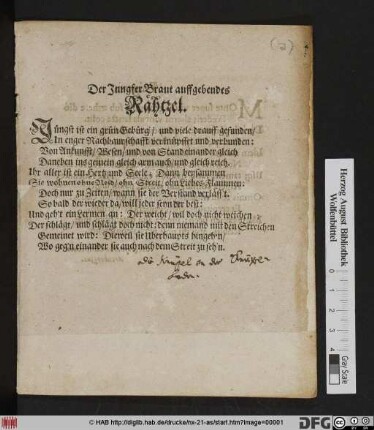 (2)
Der Jungfer Braut auffgebendes
Rähtzel.
Jüngst ist ein grün Gebürg / und viele drauff gefunden /
In enger Nachbauрschafft verknüpffet und verbunden:
Von Ankunfft / Wesen / und von Stand einander gleich
Daneben ins gemein gleich arm auch und gleich reich.
Ihr aller ist ein Hertz und Seele; Dann beysammen
Sie wohnen ohne Neid / ohn Streit / ohn Liebes Flammen:
Doch nur zu Zeiten / wann sie der Verstand verläßt.
So bald der wieder da / will jeder seyn der best:
Und geht ein Lermen an: Der weicht / wil doch nicht weichen;
Der schläge / und schlägt doch nicht: denn niemand mit den Streichen
Gemeinet wird: Dieweil sie Uberhaupts hingehn /
Wo gegn einander sie auch nach dem Streit zu sehn.
Herzog August Bibliothek
Wolfenbüttel
Gray Scale
© HAB http://diglib.hab.de/drucke/nx-21-as/start.htm?image=00001
DFG